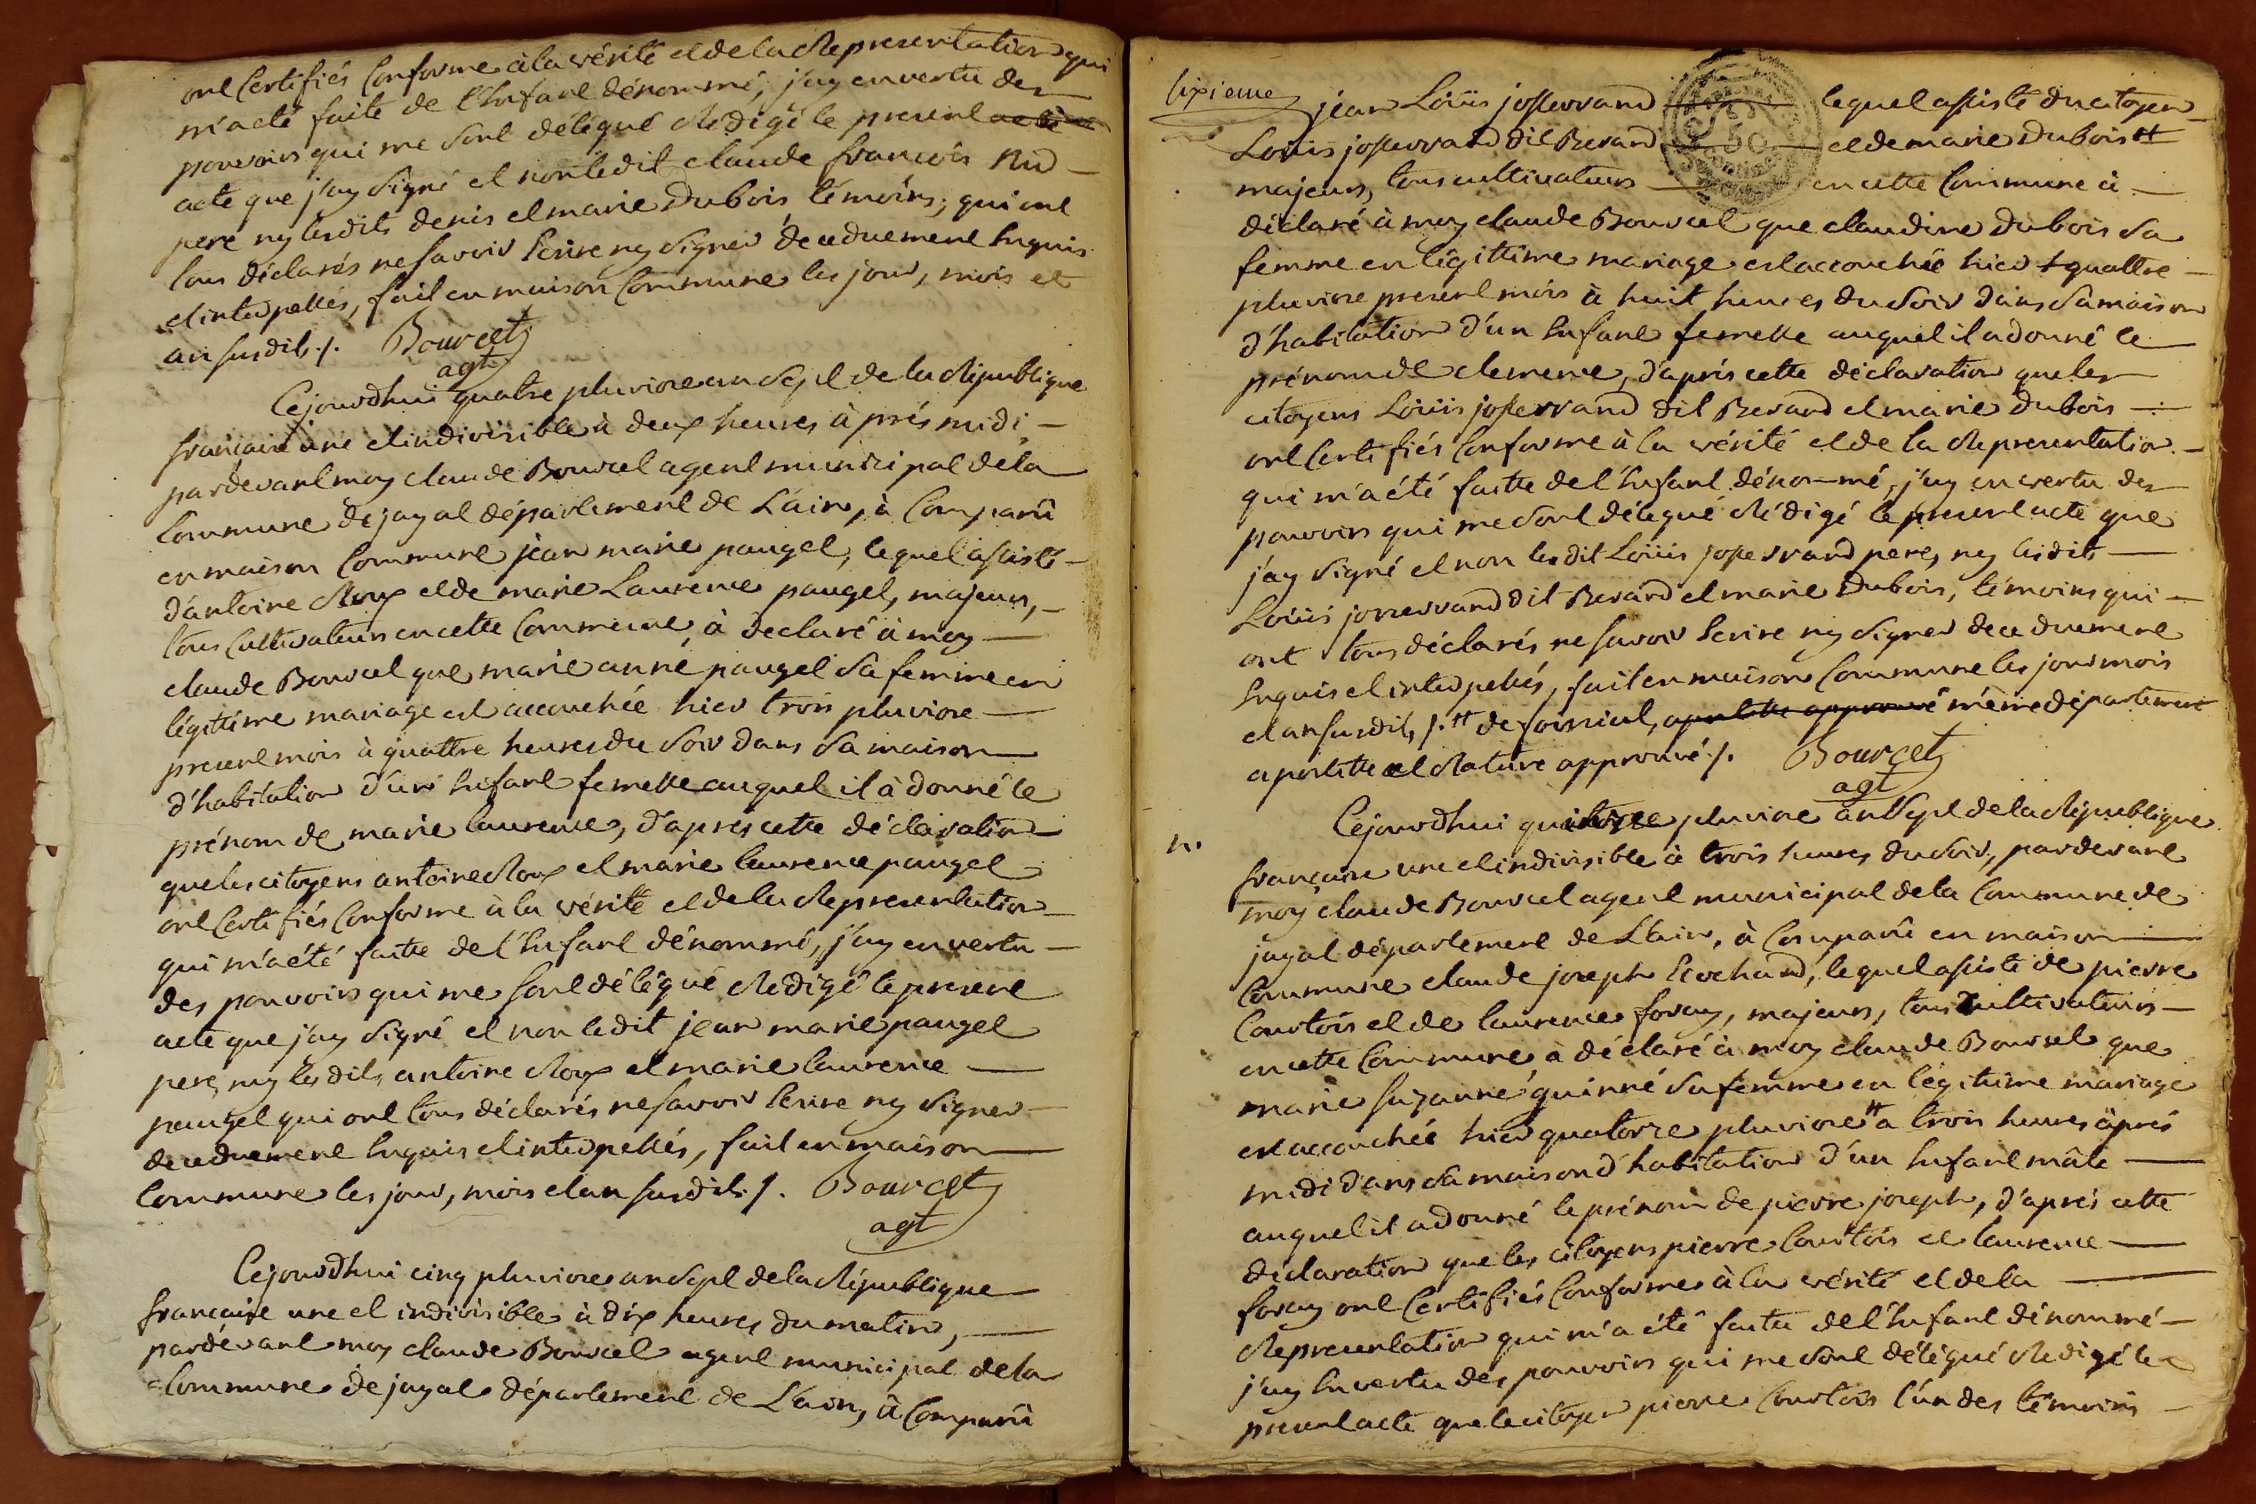 ont Certifiés Conforme à la vérité et de la Representation qui
m'a eté faite de l'Enfant dénommé, j'ay en vertu des
pouvoirs qui me sont délégué Redigé le present acte
acte que j'ay signé et non ledit claude françois
pere ny lesdits denis et marie Dubois témoins, qui ont
tous déclarés ne savoir Ecrire ny signer de ce duement Enquis
et interpellés, fait en maison Commune les jour, mois et
an susdits ./. Bourcet
agt
Cejourdhui quatre pluviose an sept de la République
française une et indivisible à deux heures après midi
pardevant moy claude Bourcet agent municipal de la
Commune de jayat département de L'ain, à Comparû
en maison Commune jean marie paugel, lequel assisté
d'antoine Roux et de marie Laurence paugel, majeurs,
tous Cultivateurs en cette Commune, à déclaré à moy
claude Bourcet que marie anne paugel sa femme en
légitime mariage est accouchée hier trois pluviose
present mois à quattre heures du soir dans sa maison
d'habitation d'un Enfant femelle auquel il à donné le
prénom de marie laurence, d'après cette déclaration
que les citoyens antoine Roux et marie laurence paugel
ont Certifiés Conforme à la vérité et de la Representation
qui m'a été faitte de l'Enfant dénommé, j'ay en vertu
des pouvoirs qui me sont délégué Redigé le present
acte que j'ay signé et non ledit jean marie paugel
pere, ny lesdits antoine Roux et marie laurence
paugel qui ont tous déclarés ne savoir Ecrire ny signer
de ce duement Enquis et interpellés, fait en maison
Commune les jour, mois et an susdits ./. Bourcet
agt
Cejourdhui cinq pluviose an sept de la République
française une et indivisible à dix heures du matin,
pardevant moy claude Bourcet agent municipal de la
Commune de jayat département de L'ain, à Comparû
Sixieme
jean Loüis josserrand lequel assisté du citoyen
Loüis josserrand dit Berard et de marie Dubois #
majeurs, tous cultivateurs en cette Commune à
déclaré à moy claude Bourcet que claudine Dubois sa
femme en légittime mariage est accouchée hier quattre
pluviose present mois à huit heures du soir dans sa maison
d'habitation d'un Enfant femelle auquel il a donné le
prénom de clemence, d'après cette déclaration que les
citoyens Loüis josserrand dit Berard et marie Dubois
ont Certifiés Conforme à la vérité et de la Representation
qui m'a été faitte de l'Enfant dénommé, j'ay en vertu des
pouvoirs qui me sont délégué Rédigé le present acte que
j'ay signé et non lesdit Loüis josserrand pere, ny lesdits
Loüis josserrand dit Berard et marie Dubois, témoins qui
ont tous déclarés ne savoir Ecrire ny signer de ce duement
Enquis et interpellés, fait en maison Commune les jour mois
et an susdits ./. # de foissiat, apostille approuvé même département
apostille et Rature approuvé ./. Bourcet
agt
Cejourdhui quinze pluviose an sept de la République
française une et indivisible à trois heures du soir, pardevant
moy claude Bourcet agent municipal de la Commune de
jayat département de L'ain, à Comparû en maison
Commune claude joseph Ecochard, lequel assisté de pierre
Courtois et de laurence foray, majeurs, tous cultivateurs
en cette Commune à déclaré à moy claude Bourcet que
marie suzanne quinné sa femme en légitime mariage
est accouchée hier quatorze pluviose # à trois heures après
midi dans sa maison d'habitation d'un Enfant mâle
auquel il a donné le prénom de pierre joseph, d'après cette
déclaration que les citoyens pierre Courtois et laurence
foray ont Certifiés Conforme à la vérité et de la
Representation qui m'a été faitte de l'Enfant dénommé
j'ay En vertu des pouvoirs qui me sont délégué Redigé le
present acte que le citoyen pierre Courtois l'un des témoins